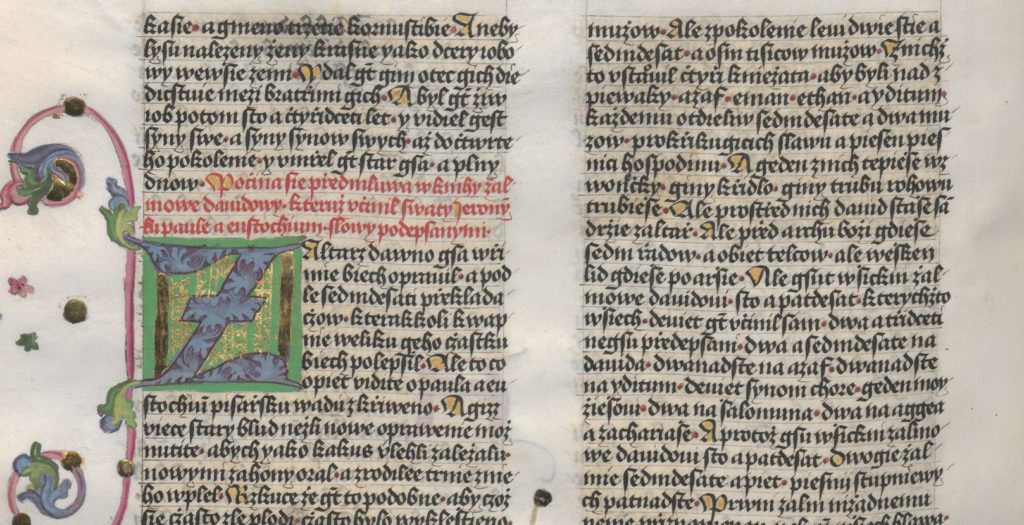 kasie · a gmeno třzetie kornustibie · A neby
lysu nalezeny ženy krasňe yako dcery iobo
wy wewšie zemi · Y dal gt̄ gim otec gich die
dicstwie mezi bratřimi gich · A byl gt̄ žiw
iob potom sto a čtyřidceti let · y vidiel gest
syny swe · a syny synow swych až do čtwrte
ho pokolenie · y vmřel gt̄ star gsa · a plny
dnow · Počina sie předmluwa w knihy žal
mowe dauidowy · kteruž včinil swaty Ieroný
ku paule a eustochium · slowy podepsanymi ·
Zaltarz dawno gsa w ři
mie biech oprauil · a pod
le sedmdesati překlada
čzow · kterakkoli kwap
nie weliku geho čzastku
biech polepšil · Ale to co
opiet vidite o paula a eu
stochiū pisařsku wadu zkřiweno · A girz
viece stary blud nežli nowe oprawenie mož
nutite · abych yako kakus vlehli zaležalu ·
nowymi zahony oral · a zrodilee trnie znie
ho wplel · Rzkuce že gt̄ to podobne · aby čzož
sie čzasto zle plodi · čzasto bylo wyklestieno
mužow · Ale z pokolenie leui dwiestie a
sedmdesat · a osm tisicow mužow · Z nichž
to vstawil čtyři kniežata · aby byli nad z
piewaky · azaf · eman · ethan · a yditum ·
každemu otdieliw sedmdesate a dwa mu
žow · prokřikugicich slawu a piesen pies
nici hospodinu · A geden z nich tepiese w z
wončky · giny křidlo · giny trubu rohowu
trubiese · Ale prostřed nich dauid stase sā
drzie zaltař · Ale před archu boži gdiese
sedm řzidow · a obiet telcow · ale wesken
lid gdiese po arsie · Ale gsut wsickni žal
mowe dauidoui · sto a patdesat · kterychžto
wsiech · dewiet gt̄ včinil sam · dwa a třidceti
negsu předepsam · dwa a sedmdesate na
dauida · dwanadste na azaf · dwanadste
na yditum · dewiet synom chore · geden moy
žiešowi · dwa na salomuna · dwa na aggea
a zachariase · A protož gsu wsickni žalmo
we dauidoui sto a patdesat · Dwogie žal
mie sedmdesate a piet · piesni stupniewy
ch patnadste · Prwni žalm mžadnemu